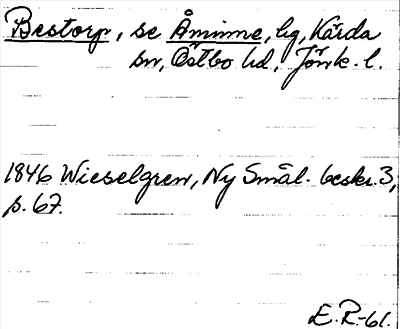 Bestorp, se Åminne, hg, Kärda
sn, Östbo hd, Jönk. l.
1846 Wieselgren, Ny Smål. beskr. 3,
p. 67.
E.R-61.